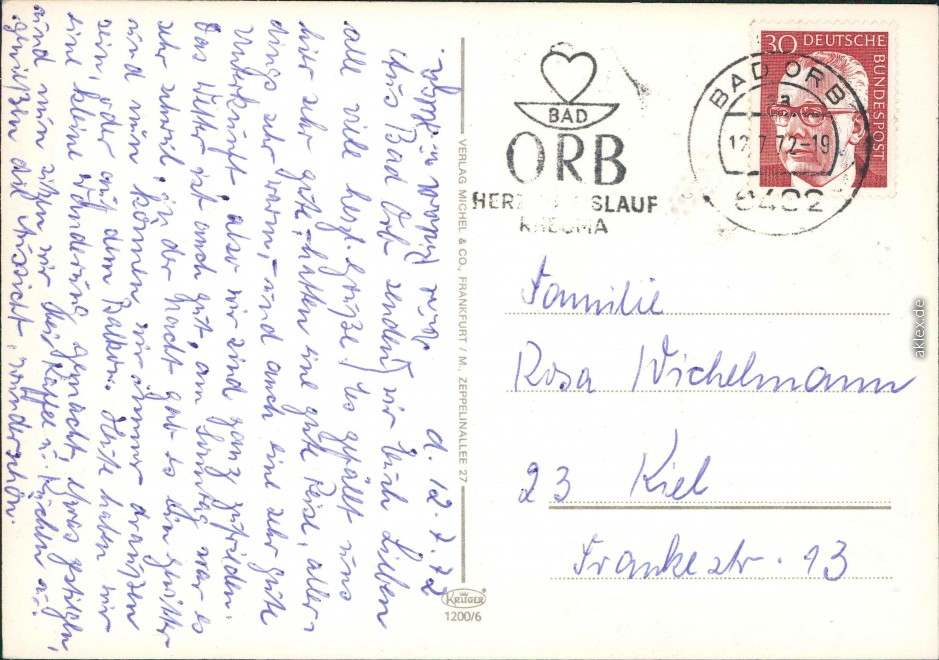 d. 12.7.72
Aus Bad Orb senden wir Euch Lieben
alle viele herzl. Grüße! Es gefällt uns
hier sehr gut, hatten eine gute Reise, aller-
dings sehr warm, und auch eine sehr gute
Unterkunft, also wir sind ganz zufrieden.
Das Wetter ist auch gut, am Sonntag war es
sehr schwül, in der Nacht gab es ein Gewitter
und nun können wir immer draußen
sein, oder auf dem Balkon. Heute haben wir
eine kleine Wanderung gemacht, etwas gestiegen,
und nun sitzen wir bei Kaffee u. Kuchen u.
genießen die Aussicht, wunderschön.
VERLAG MICHEL & CO., FRANKFURT / M., ZEPPELINALLEE 27
KRÜGER
1200/6
BAD
ORB
HERZ KREISLAUF
RHEUMA
BAD ORB
a
12.7.72-19
6482
30 DEUTSCHE
BUNDESPOST
Familie
Rosa Wichelmann
23 Kiel
Frankestr. 13
aklex.de